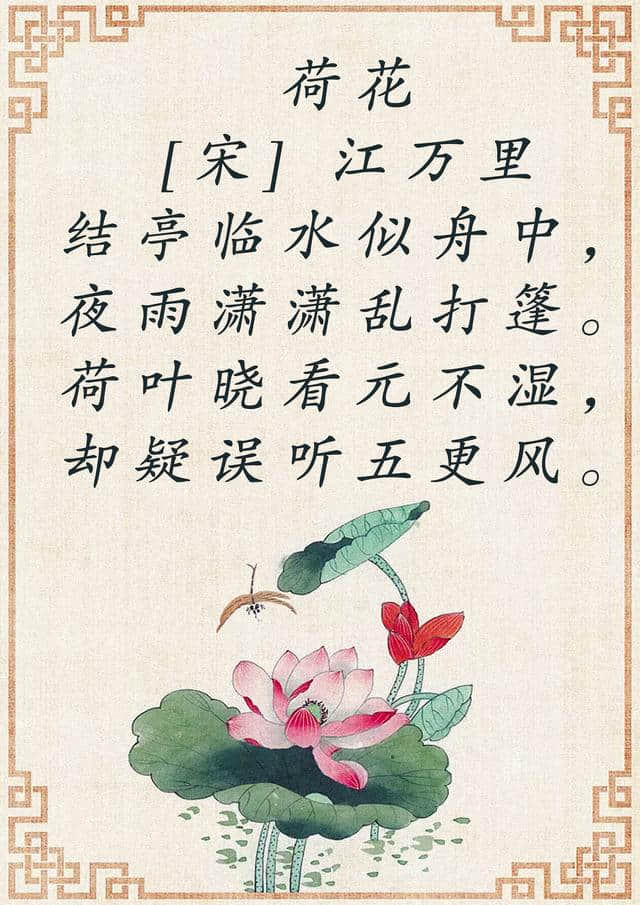 荷花
[宋] 江万里
结亭临水似舟中，
夜雨潇潇乱打篷。
荷叶晓看元不湿，
却疑误听五更风。